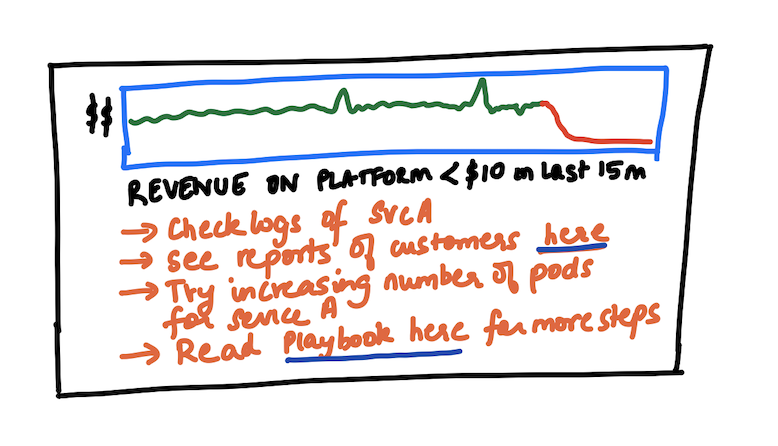 $$
REVENUE ON PLATFORM < $10 in Last 15m
→ Check logs of SvcA
→ See reports of customers here
→ Try increasing number of pods
for service A
→ Read Playbook here for more steps